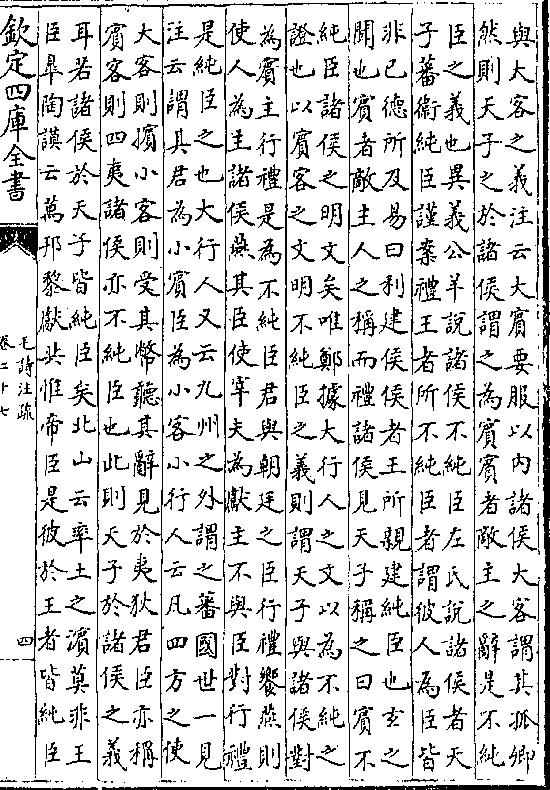 與大客之義注云大賓要服以内諸侯大客謂其孤卿
然則天子之於諸侯謂之為賓賓者敵主之辭是不純
臣之義也異義公羊説諸侯不純臣左氏説諸侯者天
子蕃衛純臣謹案禮王者所不純臣者謂彼人為臣皆
非已德所及易曰利建侯侯者王所親建純臣也玄之
聞也賓者敵主人之稱而禮諸侯見天子稱之曰賓不
純臣諸侯之明文矣唯鄭據大行人之文以為不純之
證也以賓客之文明不純臣之義則謂天子與諸侯對
為賓主行禮是為不純臣君與朝廷之臣行禮饗燕則
使人為主諸侯燕其臣使宰夫為獻主不與臣對行禮
是純臣之也大行人又云九州之外謂之蕃國世一見
注云謂其君為小賓臣為小客小行人云凡四方之使
大客則擯小客則受其幣聽其辭見於夷狄君臣亦稱
賓客則四夷諸侯亦不純臣也此則天子於諸侯之義
耳若諸侯於天子皆純臣矣北山云率土之濱莫非王
臣臯陶謨云萬邦黎獻共惟帝臣是彼於王者皆純臣
欽定四庫全書
毛詩注疏
卷二十七
四